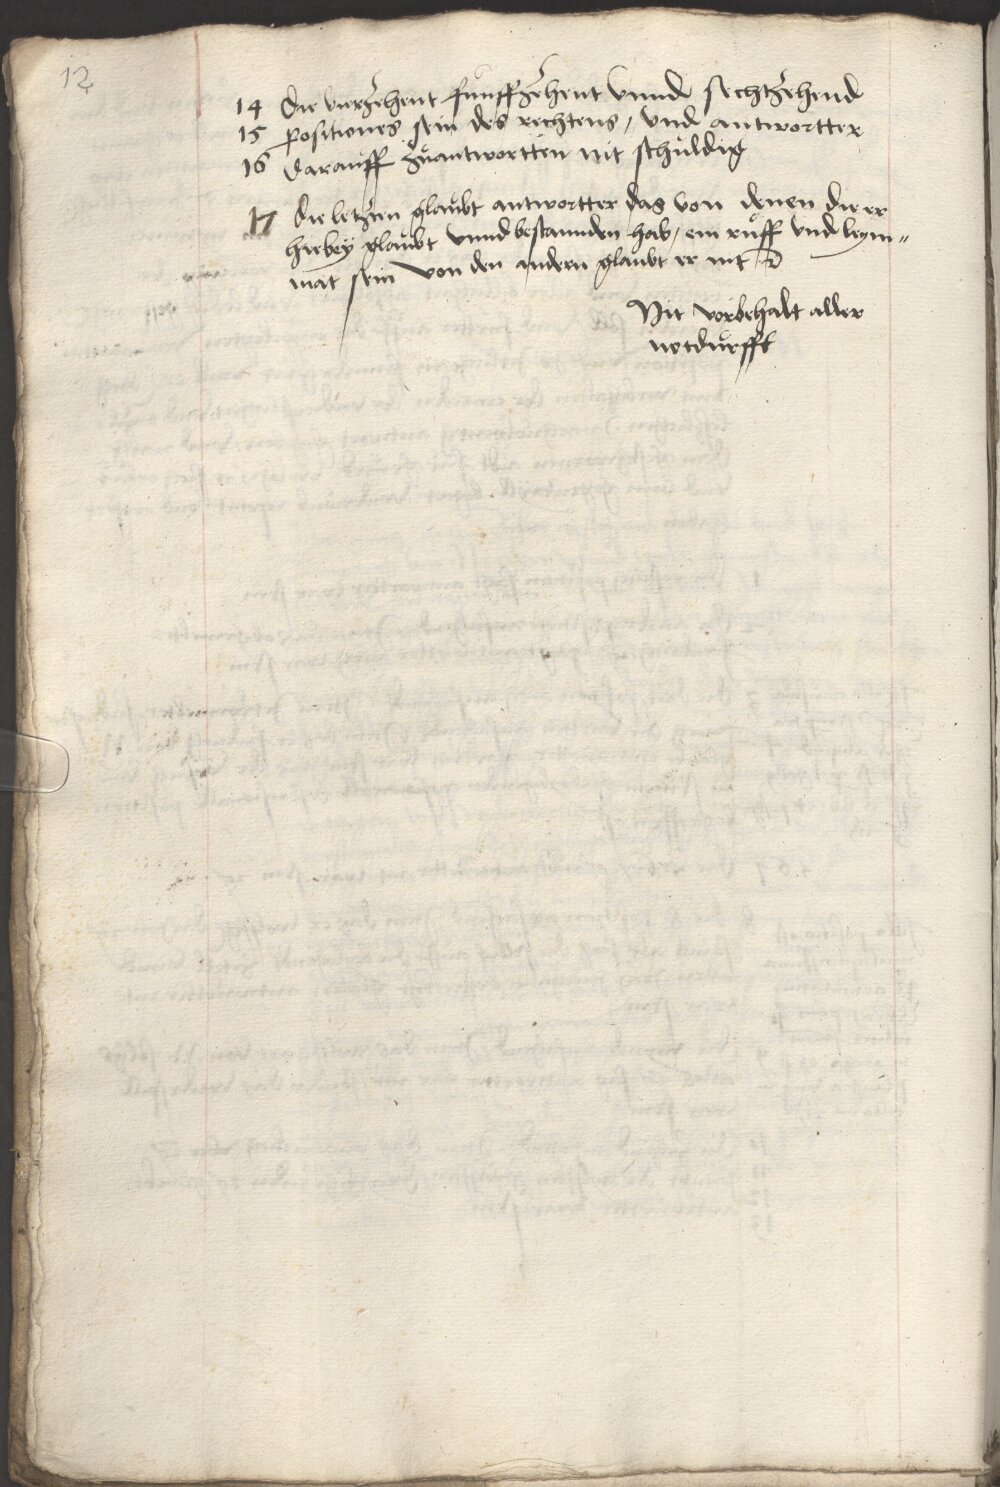 12
14 Die vierzehent funffzehent vnnd sechtzehend
15 positiones sein des rechtens, vnd antwortter
16 darauff zuantwortten nit schuldig
17 Die letzten glaubt antwortter das von denen die er
hiebey glaubt vnnd bestannden hab, ein ruff vnd leym=
mat sein von den andern glaubt er nit
Mit vorbehalt aller
notdurfft